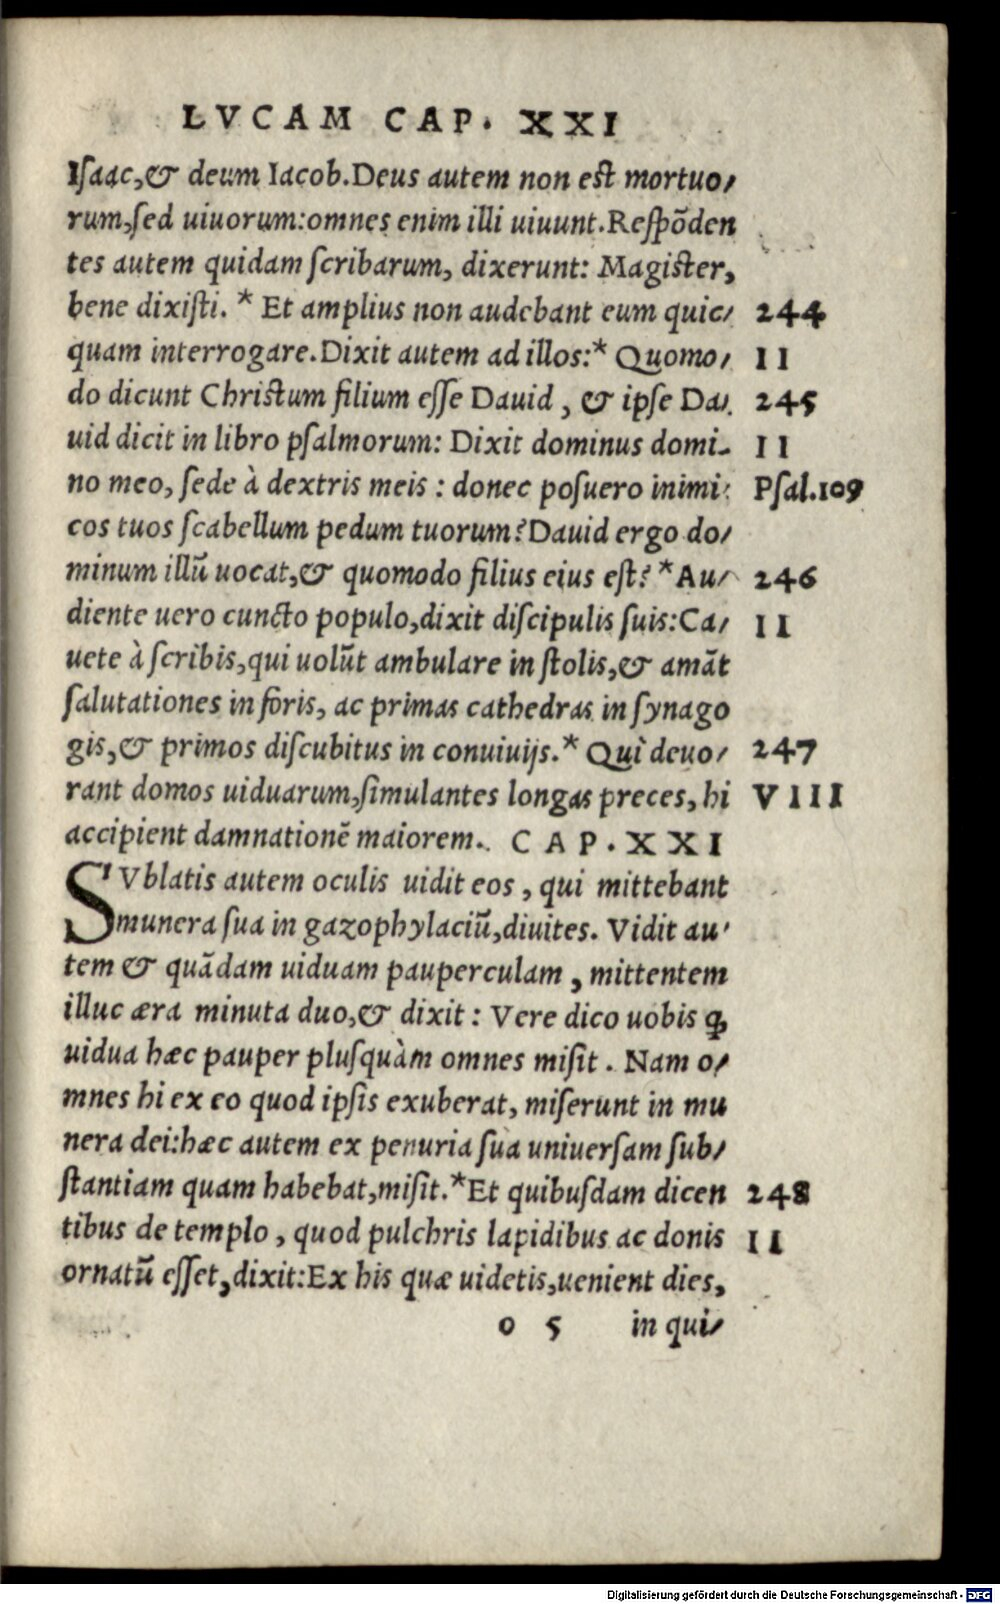 LVCAM CAP. XXI
Iſaac,& deum Iacob.Deus autem non est mortuo/
rum,ſed uiuorum:omnes enim illi uiuunt.Reſpōden
tes autem quidam ſcribarum, dixerunt: Magister,
bene dixiſti. * Et amplius non audebant eum quic/ 244
quam interrogare.Dixit autem ad illos:* Quomo/ II
do dicunt Christum filium eſſe Dauid , & ipſe Da/ 245
uid dicit in libro pſalmorum: Dixit dominus domi- II
no meo, ſede à dextris meis : donec poſuero inimi Pſal.109
cos tuos ſcabellum pedum tuorum?Dauid ergo do/
minum illū uocat,& quomodo filius eius eſt? *Au/ 246
diente uero cuncto populo,dixit diſcipulis ſuis:Ca/ II
uete à ſcribis,qui uolūt ambulare in ſtolis,& amāt
ſalutationes in foris, ac primas cathedras in ſynago
gis,& primos diſcubitus in conuiuijs.* Quì deuo/ 247
rant domos uiduarum,ſimulantes longas preces, hi VIII
accipient damnationē maiorem. CAP.XXI
SVblatis autem oculis uidit eos , qui mittebant
munera ſua in gazophylaciū,diuites. Vidit au/
tem & quādam uiduam pauperculam , mittentem
illuc æra minuta duo,& dixit : Vere dico uobis ꝙ,
uidua hæc pauper pluſquàm omnes miſit . Nam o/
mnes hi ex eo quod ipſis exuberat, miſerunt in mu
nera dei:hæc autem ex penuria ſua uniuerſam ſub/
ſtantiam quam habebat,miſit.*Et quibuſdam dicen 248
tibus de templo , quod pulchris lapidibus ac donis II
ornatū eſſet,dixit:Ex his quæ uidetis,uenient dies,
o 5 in qui/
Digitalisierung gefördert durch die Deutsche Forschungsgemeinschaft - DFG